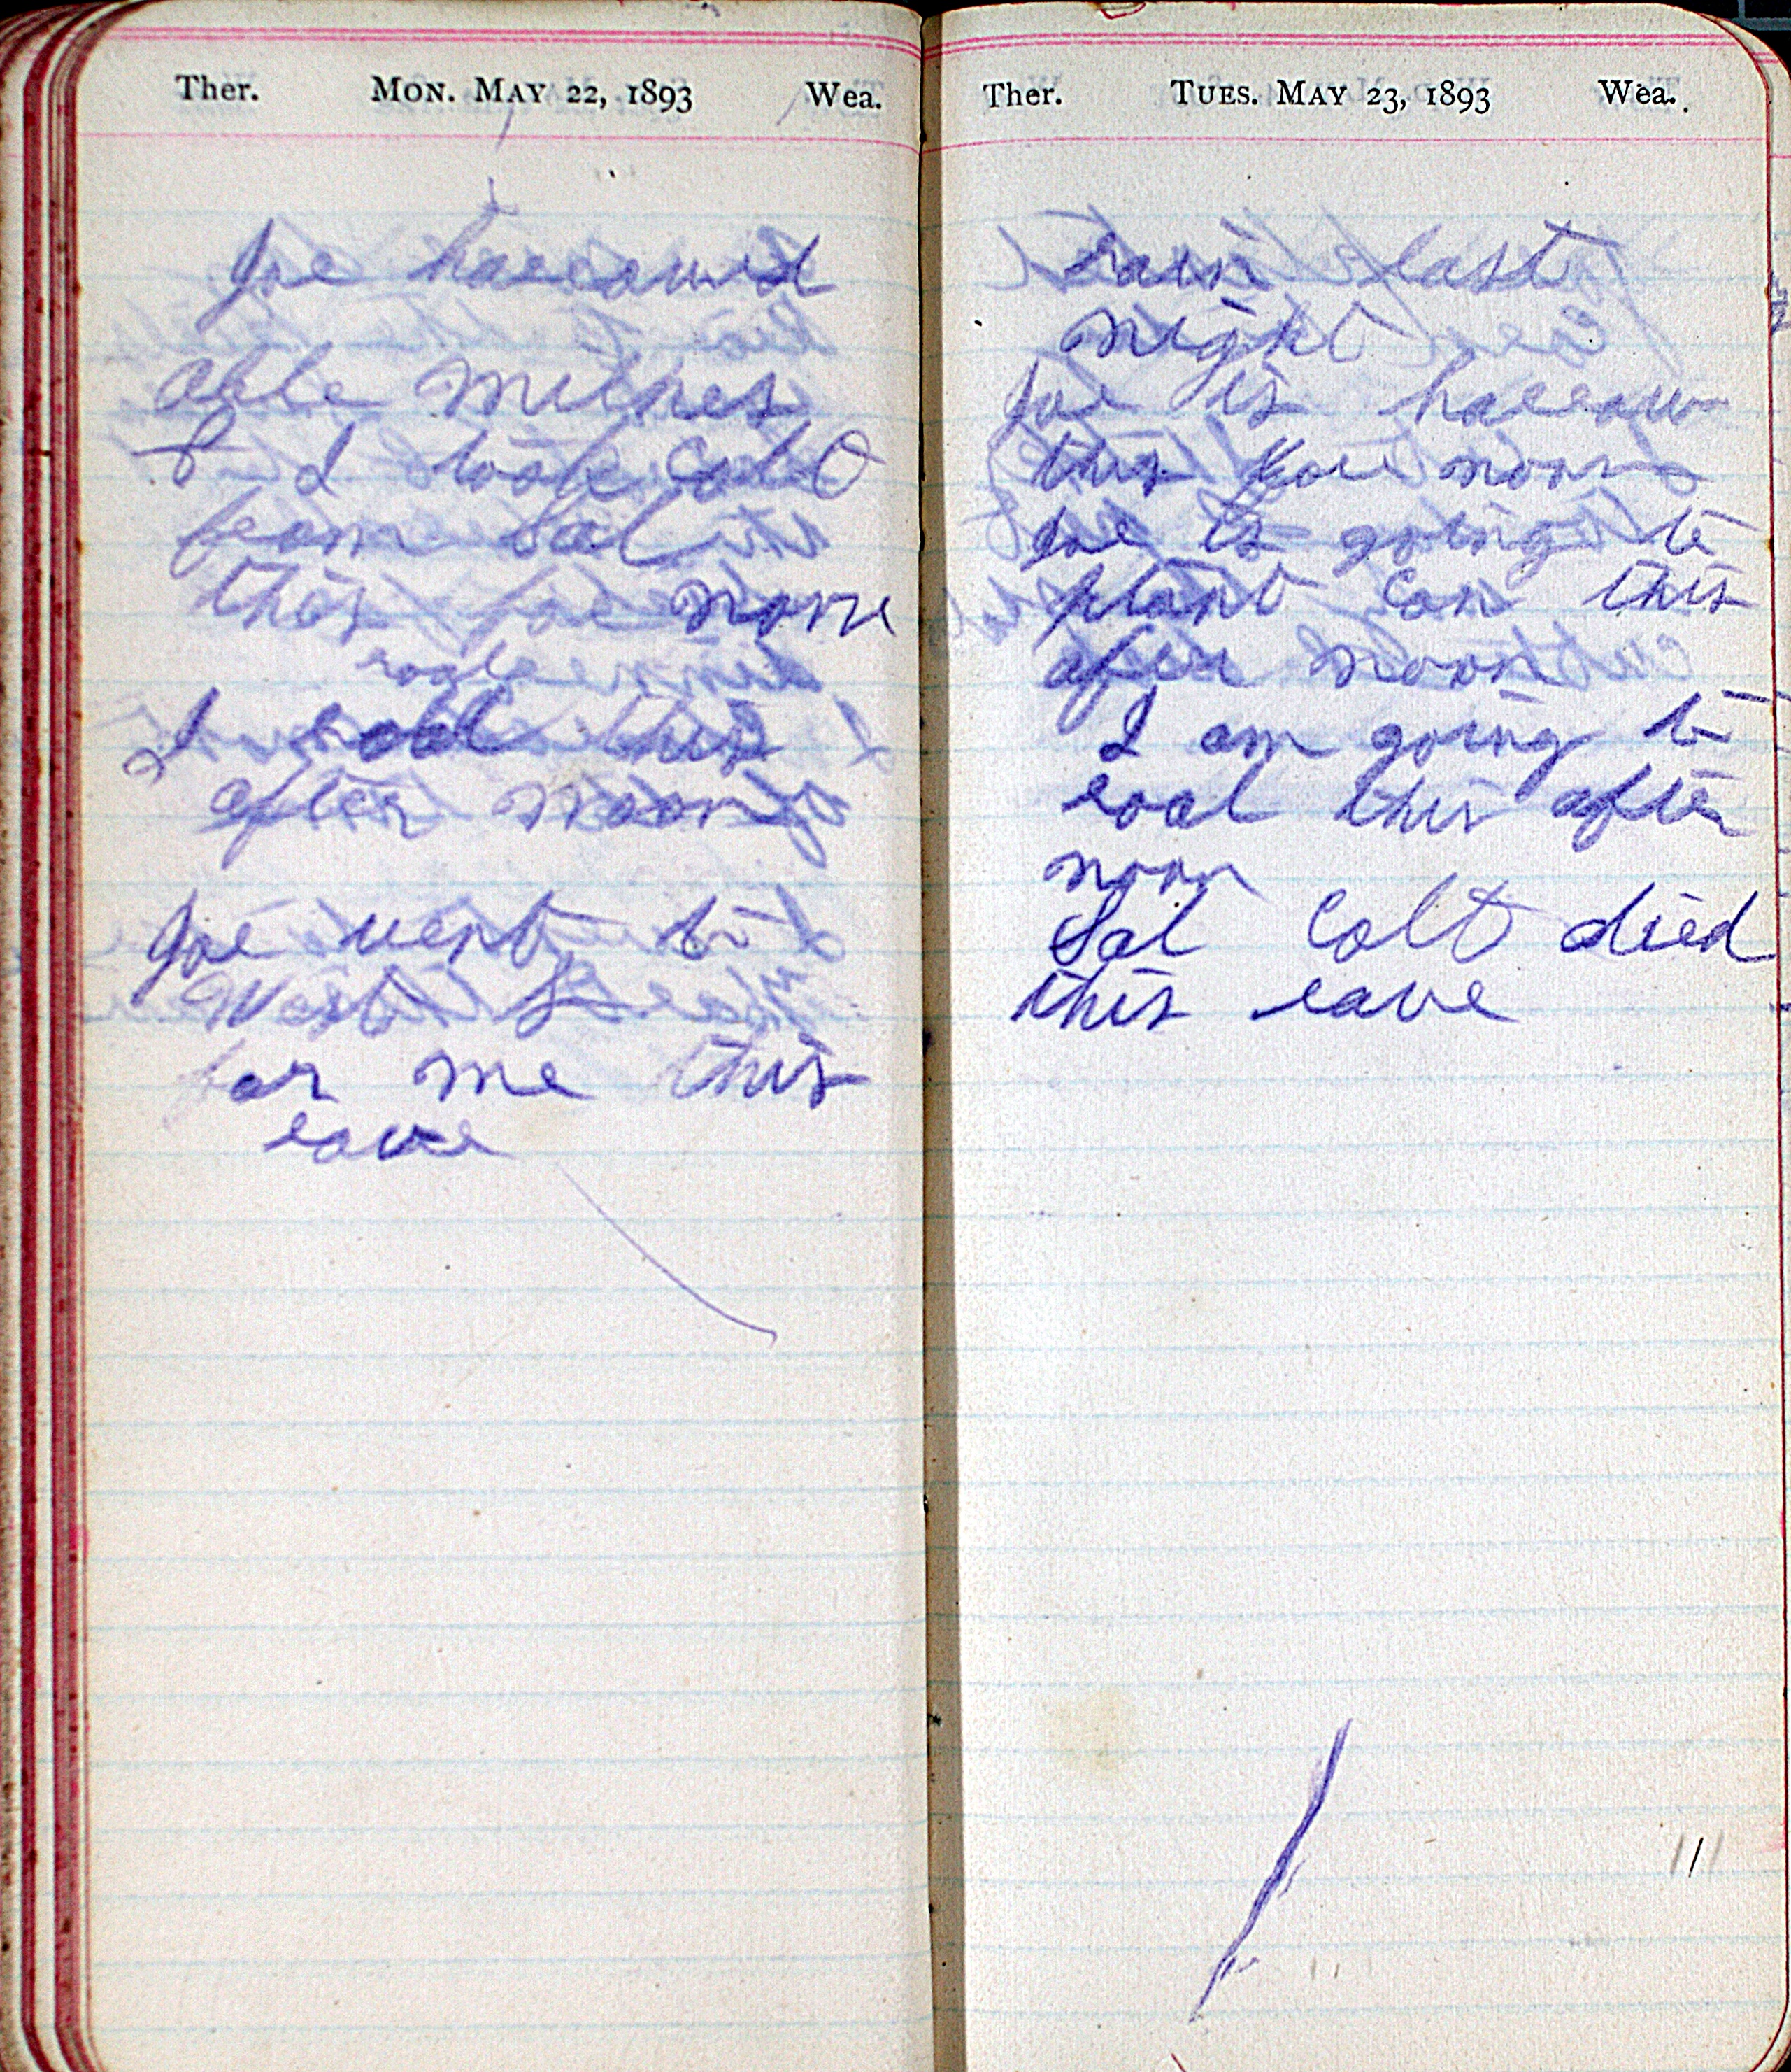 Ther. MON. MAY 22, 1893 Wea.
Joe harrowed
able Milnes
& I took Colt
from Sal
this for noon
I roal this
after noon
Joe went to
West
for me this
eave
Ther. TUES. MAY 23, 1893 Wea.
rain last
night
Joe is harrow
this fore noon
Joe is going to
plant Con this
after noon
I am going to
roal this after
noon
Sal Colt died
this eave